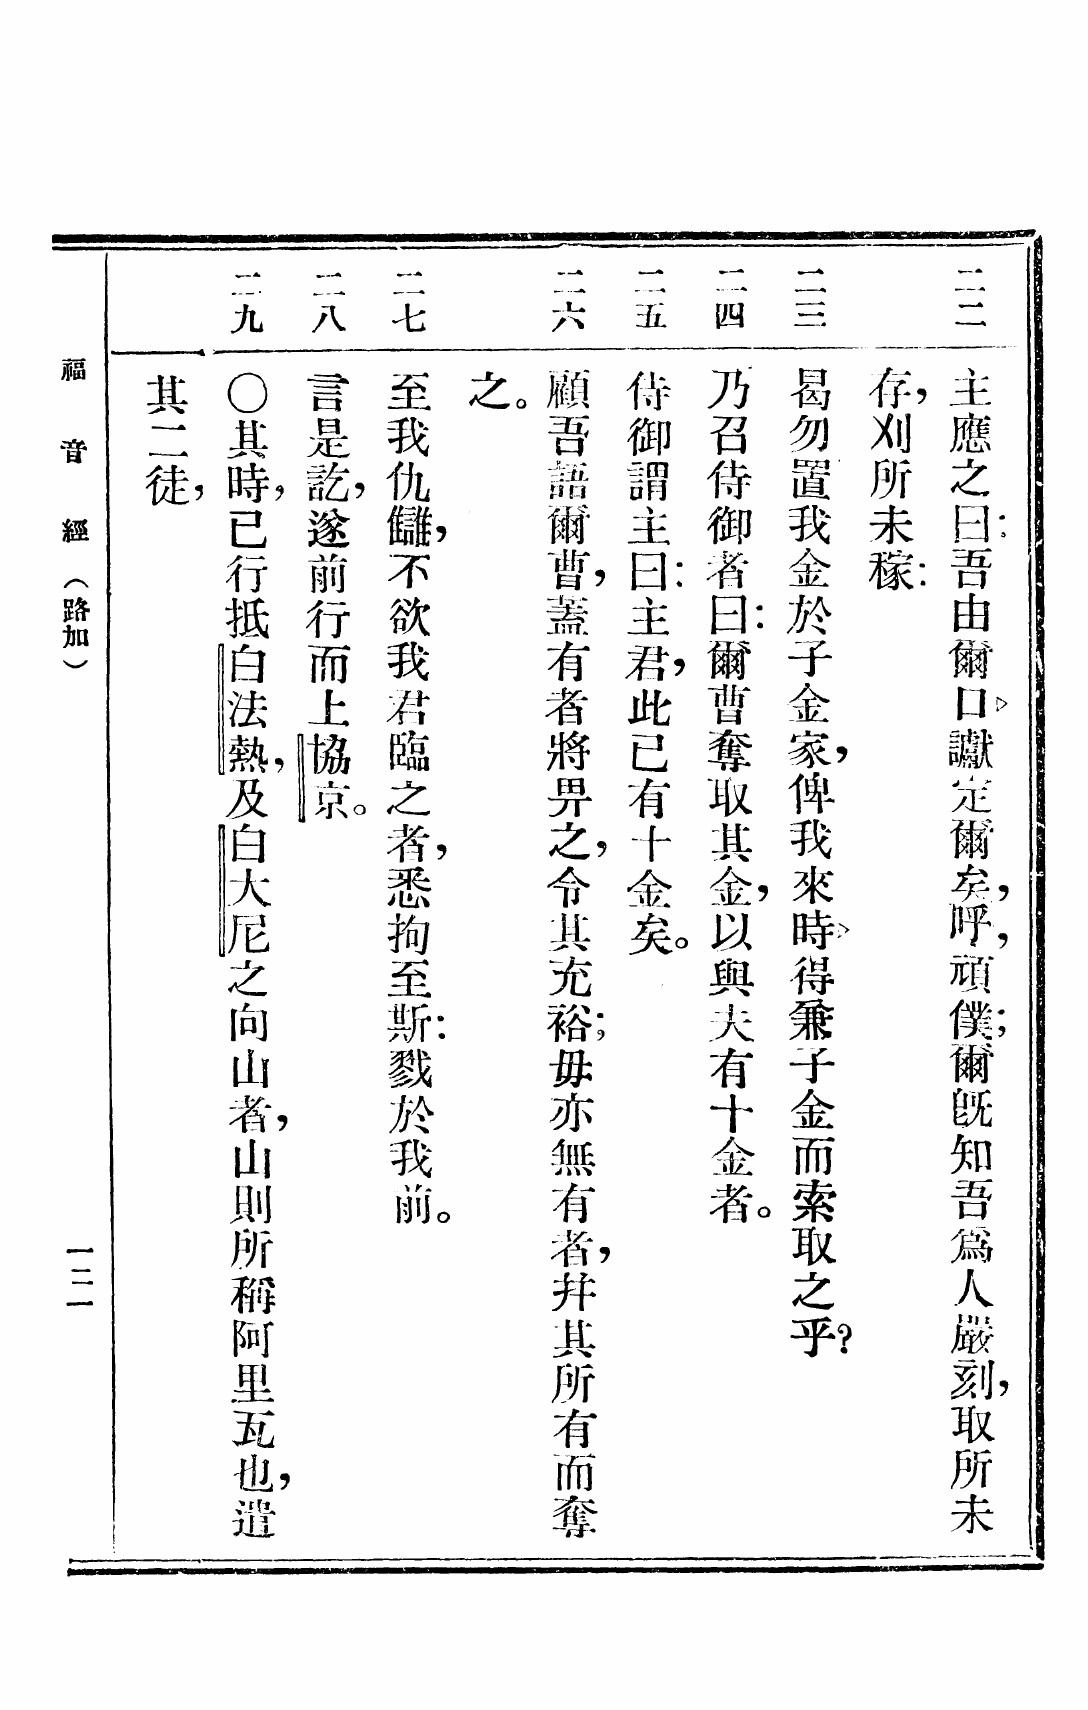 二二 主應之曰：吾由爾口讞定爾矣，呼，頑僕；爾旣知吾爲人嚴刻，取所未
存，刈所未稼：
二三 曷勿置我金於子金家，俾我來時得兼子金而索取之乎？
二四 乃召侍御者曰：爾曹奪取其金，以與夫有十金者。
二五 侍御謂主曰：主君，此已有十金矣。
二六 顧吾語爾曹，蓋有者將畀之，令其充裕；毋亦無有者，幷其所有而奪
之。
二七 至我仇讎，不欲我君臨之者，悉拘至斯：戮於我前。
二八 言是訖，遂前行而上協京。
二九 〇其時，已行抵白法熱，及白大尼之向山者，山則所稱阿里瓦也，遣
其二徒，
福音經（路加）
一二一